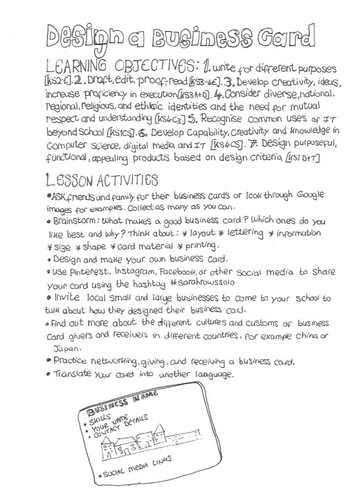 Design a Business Card
LEARNING OBJECTIVES: 1. Write for different purposes
[KS2-E] 2. Draft, edit, proof-read [KS3-4E]. 3. Develop creativity, ideas,
increase proficiency in execution [KS3A+D] 4. Consider diverse, national,
regional, religious, and ethnic identities and the need for mutual
respect and understanding [KS4C3] 5. Recognise common uses of IT
beyond School [KS1CS]. 6. Develop Capability, Creativity and knowledge in
Computer Science, digital media and IT [KS4CS]. 7. Design purposeful,
functional, appealing products based on design criteria [KS1D+T]
LESSON ACTIVITIES
• Ask friends and family for their business cards or look through Google
images for examples. Collect as many as you can.
• Brainstorm: What makes a good business card? Which ones do you
like best and why? Think about: * layout * lettering * information
* size * shape * card material * printing.
• Design and make your own business card.
• Use Pinterest, Instagram, Facebook, or other Social media to share
your card using the hashtag #sarahrowssolo
• Invite local small and large businesses to come to your school to
talk about how they designed their business card.
• Find out more about the different cultures and customs of business
Card givers and receivers in different countries, for example China or
Japan.
• Practice networking, giving, and receiving a business card.
• Translate your card into another language.
BUSINESS NAME
• SKILLS
• YOUR NAME
• CONTACT DETAILS
• SOCIAL MEDIA LINKS